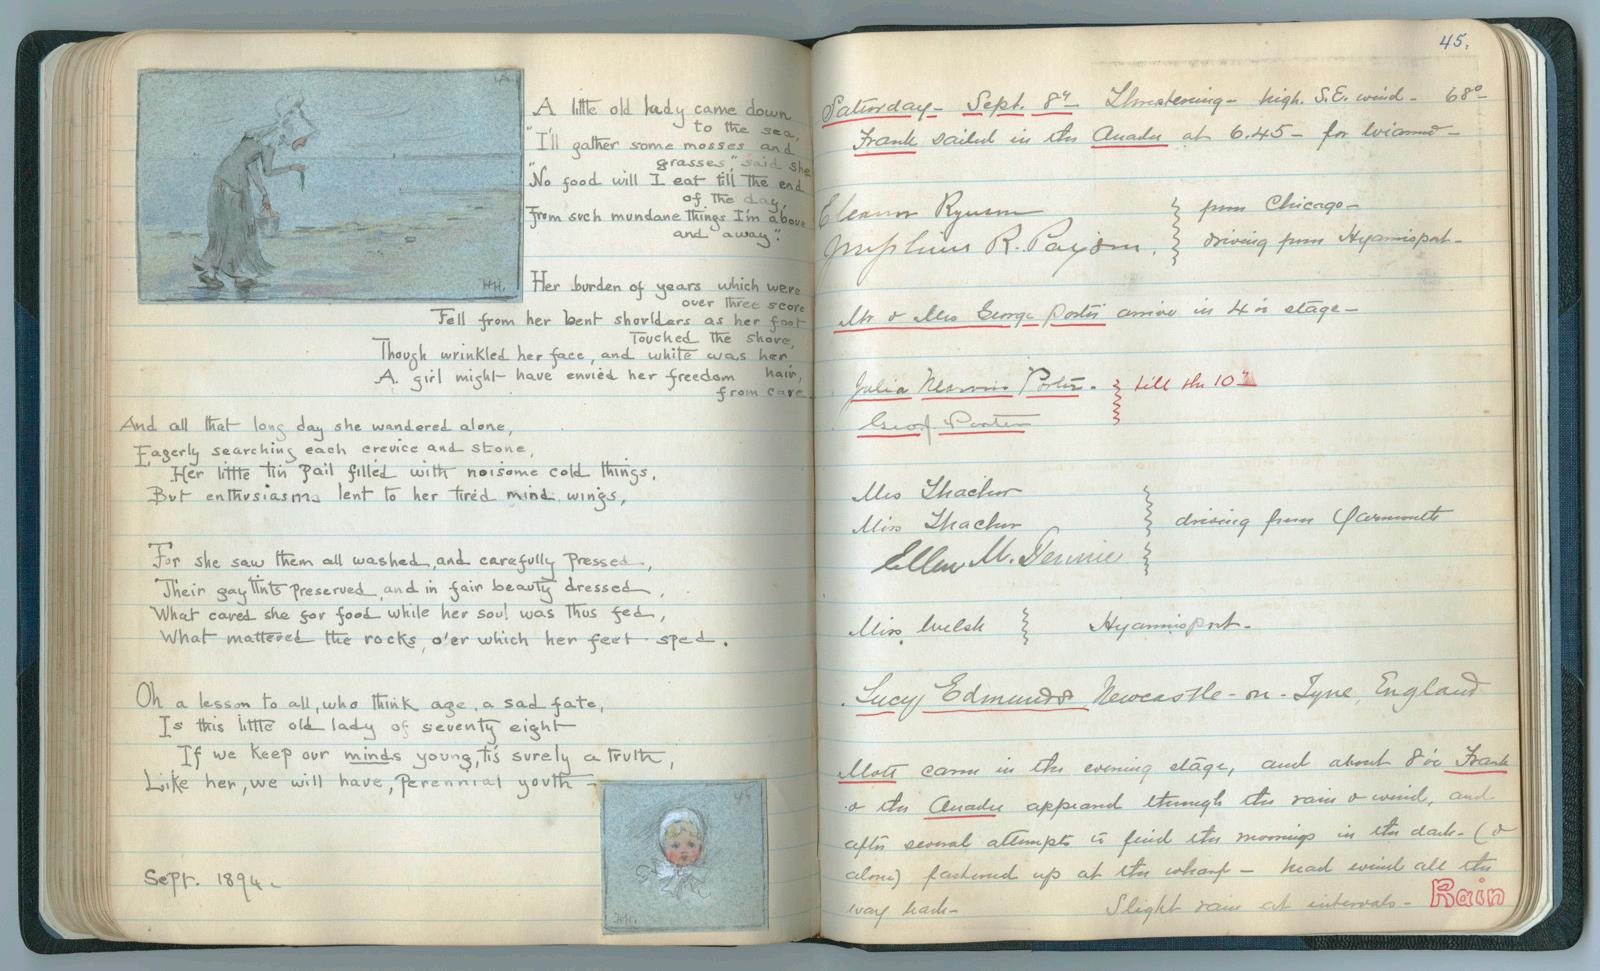 A little old lady came down
to the sea,
"I'll gather some mosses and
grasses" said she
"No food will I eat till the end
of the day,
From such mundane things I'm above
and away".
HH.
Her burden of years which were
over three score
Fell from her bent shoulders as her foot
Touched the shore,
Though wrinkled her face, and white was her
hair,
A girl might have envied her freedom
from care.
And all that long day she wandered alone,
Eagerly searching each crevice and stone,
Her little tin pail filled with noisome cold things,
But enthusiasm lent to her tired mind wings,
For she saw them all washed, and carefully pressed,
Their gay tints preserved, and in fair beauty dressed,
What cared she for food while her soul was thus fed,
What mattered the rocks o'er which her feet sped.
Oh a lesson to all, who think age, a sad fate,
Is this little old lady of seventy eight
If we keep our minds young, tis surely a truth,
Like her, we will have, perennial youth –
Sept. 1894.
HH.
45.
Saturday – Sept. 8th – Threatening – high. S.E. wind – 68° –
Frank sailed in the at 6.45 – for Wianno –
Eleanor
from Chicago –
R.
driving from Hyannisport –
Mr & Mrs George Porter arrive in 4 in stage –
Julia Porter.
till the 10th
Geo. Porter
Mrs Thacher
Miss Thacher
driving from Yarmouth
Ellen M. Dennie
Miss Welsh
Hyannisport.
Lucy Edmunds Newcastle-on-Tyne, England
Mott came in the evening stage, and about 8 Frank
& the appeared through the rain & wind, and
after several attempts to find the moorings in the dark – (&
alone) fastened up at the wharf – head wind all the
way back –
Slight rain at intervals – Rain